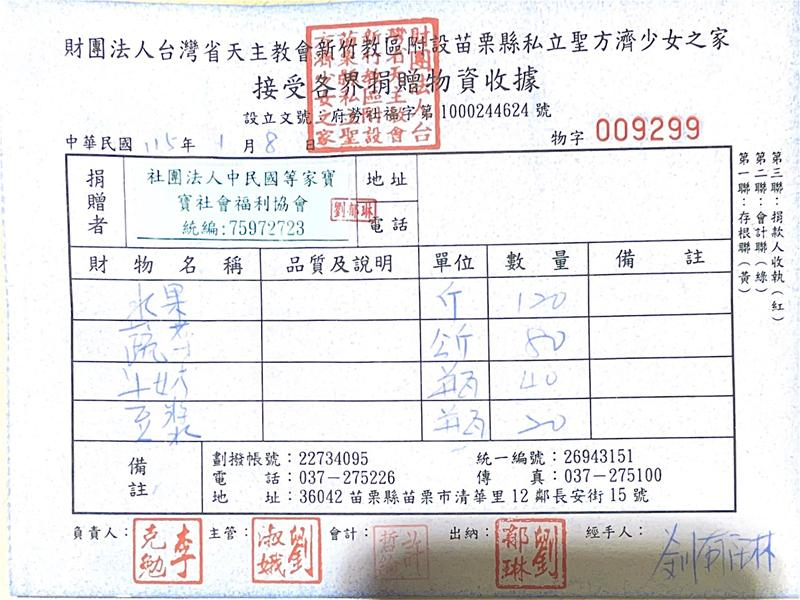 財團法人台灣省天主教會新竹教區附設苗栗縣私立聖方濟少女之家
接受各界捐贈物資收據
設立文號：府勞社福字第1000244624號
中華民國 115年 1月 8日
物字 009299
捐贈者 社團法人中民國等家寶寶社會福利協會 統編:75972723
劉郁琳
地址
電話
財物名稱 品質及說明 單位 數量 備註
水果 斤 120
蔬菜 公斤 80
牛奶 瓶 40
豆漿 瓶 20
備註
劃撥帳號：22734095 統一編號：26943151
電話：037－275226 傳真：037－275100
地址：36042 苗栗縣苗栗市清華里12鄰長安街15號
負責人：李克勉 主管：劉淑娥 會計：許哲綸 出納：劉郁琳 經手人：劉郁琳
第三聯：捐款人收執（紅）
第二聯：會計聯（綠）
第一聯：存根聯（黃）